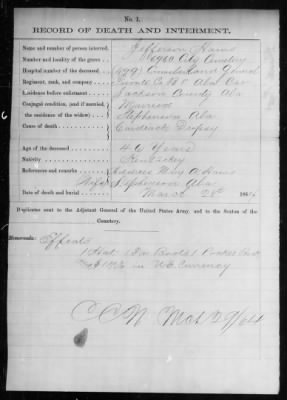 No. 1.
RECORD OF DEATH AND INTERMENT.
Name and number of person interred. Jefferson
Number and locality of the grave 6960 City Cemetery
Hospital number of the deceased (979) Cumberland General
Regiment, rank, and company Private Co. Ala Cav
Residence before enlistment Jackson County Ala
Conjugal condition, (and if married, Married
the residence of the widow) Stephenson Ala
Cause of death Cardiack Dropsy
Age of the deceased 40 Years
Nativity Kentuckey
References and remarks Address Mary A
Wife Stephenson Ala
Date of death and burial March 28th 1864
Duplicates sent to the Adjutant General of the United States Army, and to the Sexton of the Cemetery.
Memoranda: Effects
1 Hat 1 Par Boots 1 Pocket Book
in U.S. Currency
Mch 29/64